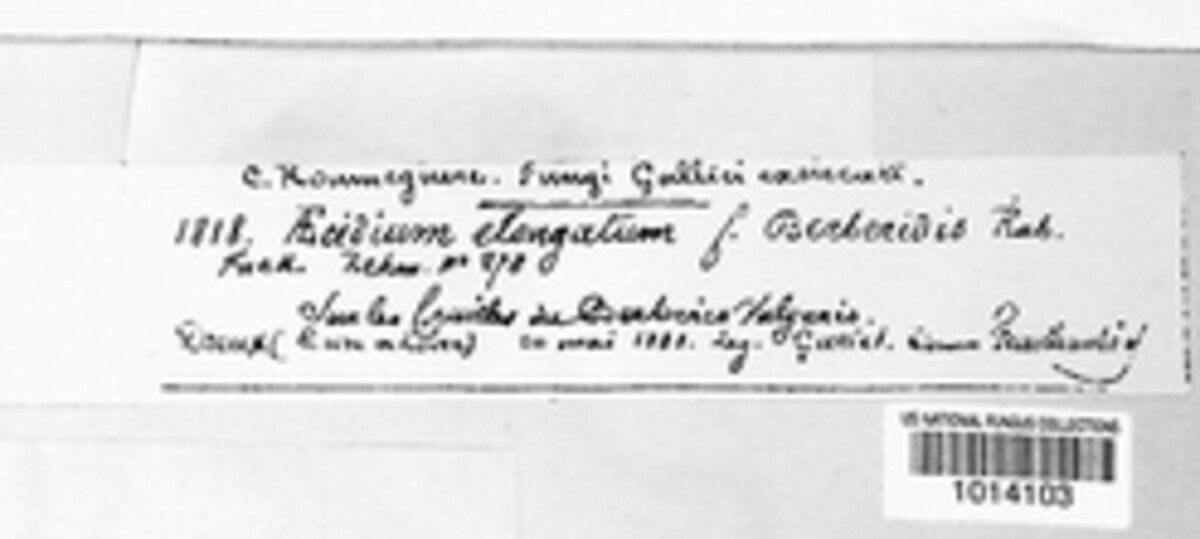 C. Roumeguère. Fungi Gallici exsiccati.
1818. Æcidium elongatum f. Berberidis Rab.
Fuck. Rehm. nº 278
Sur les feuilles du Berberis Vulgaris.
mai 1881. leg.
US NATIONAL FUNGUS COLLECTIONS
1014103